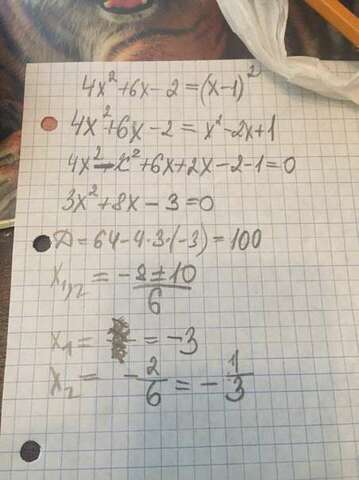 4x² + 6x - 2 = (x - 1)²
4x² + 6x - 2 = x² - 2x + 1
4x² - x² + 6x + 2x - 2 - 1 = 0
3x² + 8x - 3 = 0
D = 64 - 4 · 3 · (-3) = 100
x₁,₂ = -8 ± 10 / 6
x₁ = = -3
x₂ = - 2/6 = - 1/3